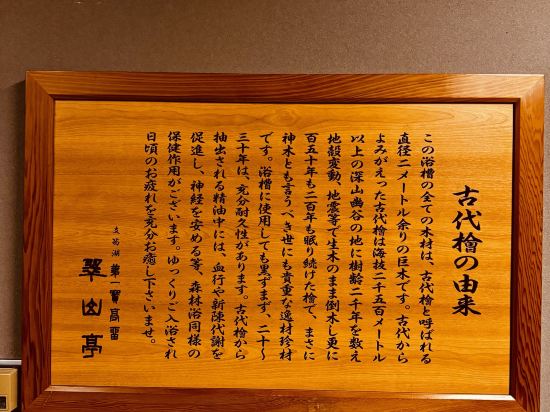 古代檜の由来
この浴槽の全ての木材は、古代檜と呼ばれる
直径二メートル余りの巨木です。古代から
よみがえった古代檜は海抜二千五百メートル
以上の深山幽谷の地に樹齢二千年を数え
地殻変動、地震等で生木のまま倒木し更に
百五十年も二百年も眠り続けた檜で、まさに
神木とも言うべき世にも貴重な逸材珍材
です。浴槽に使用しても黒ずまず、二十〜
三十年は、充分耐久性があります。古代檜から
抽出される精油中には、血行や新陳代謝を
促進し、神経を安める等、森林浴同様の
保健作用がございます。ゆっくりご入浴され
日頃のお疲れを充分お癒し下さいませ。
支笏湖 第一寶亭留
翠山亭